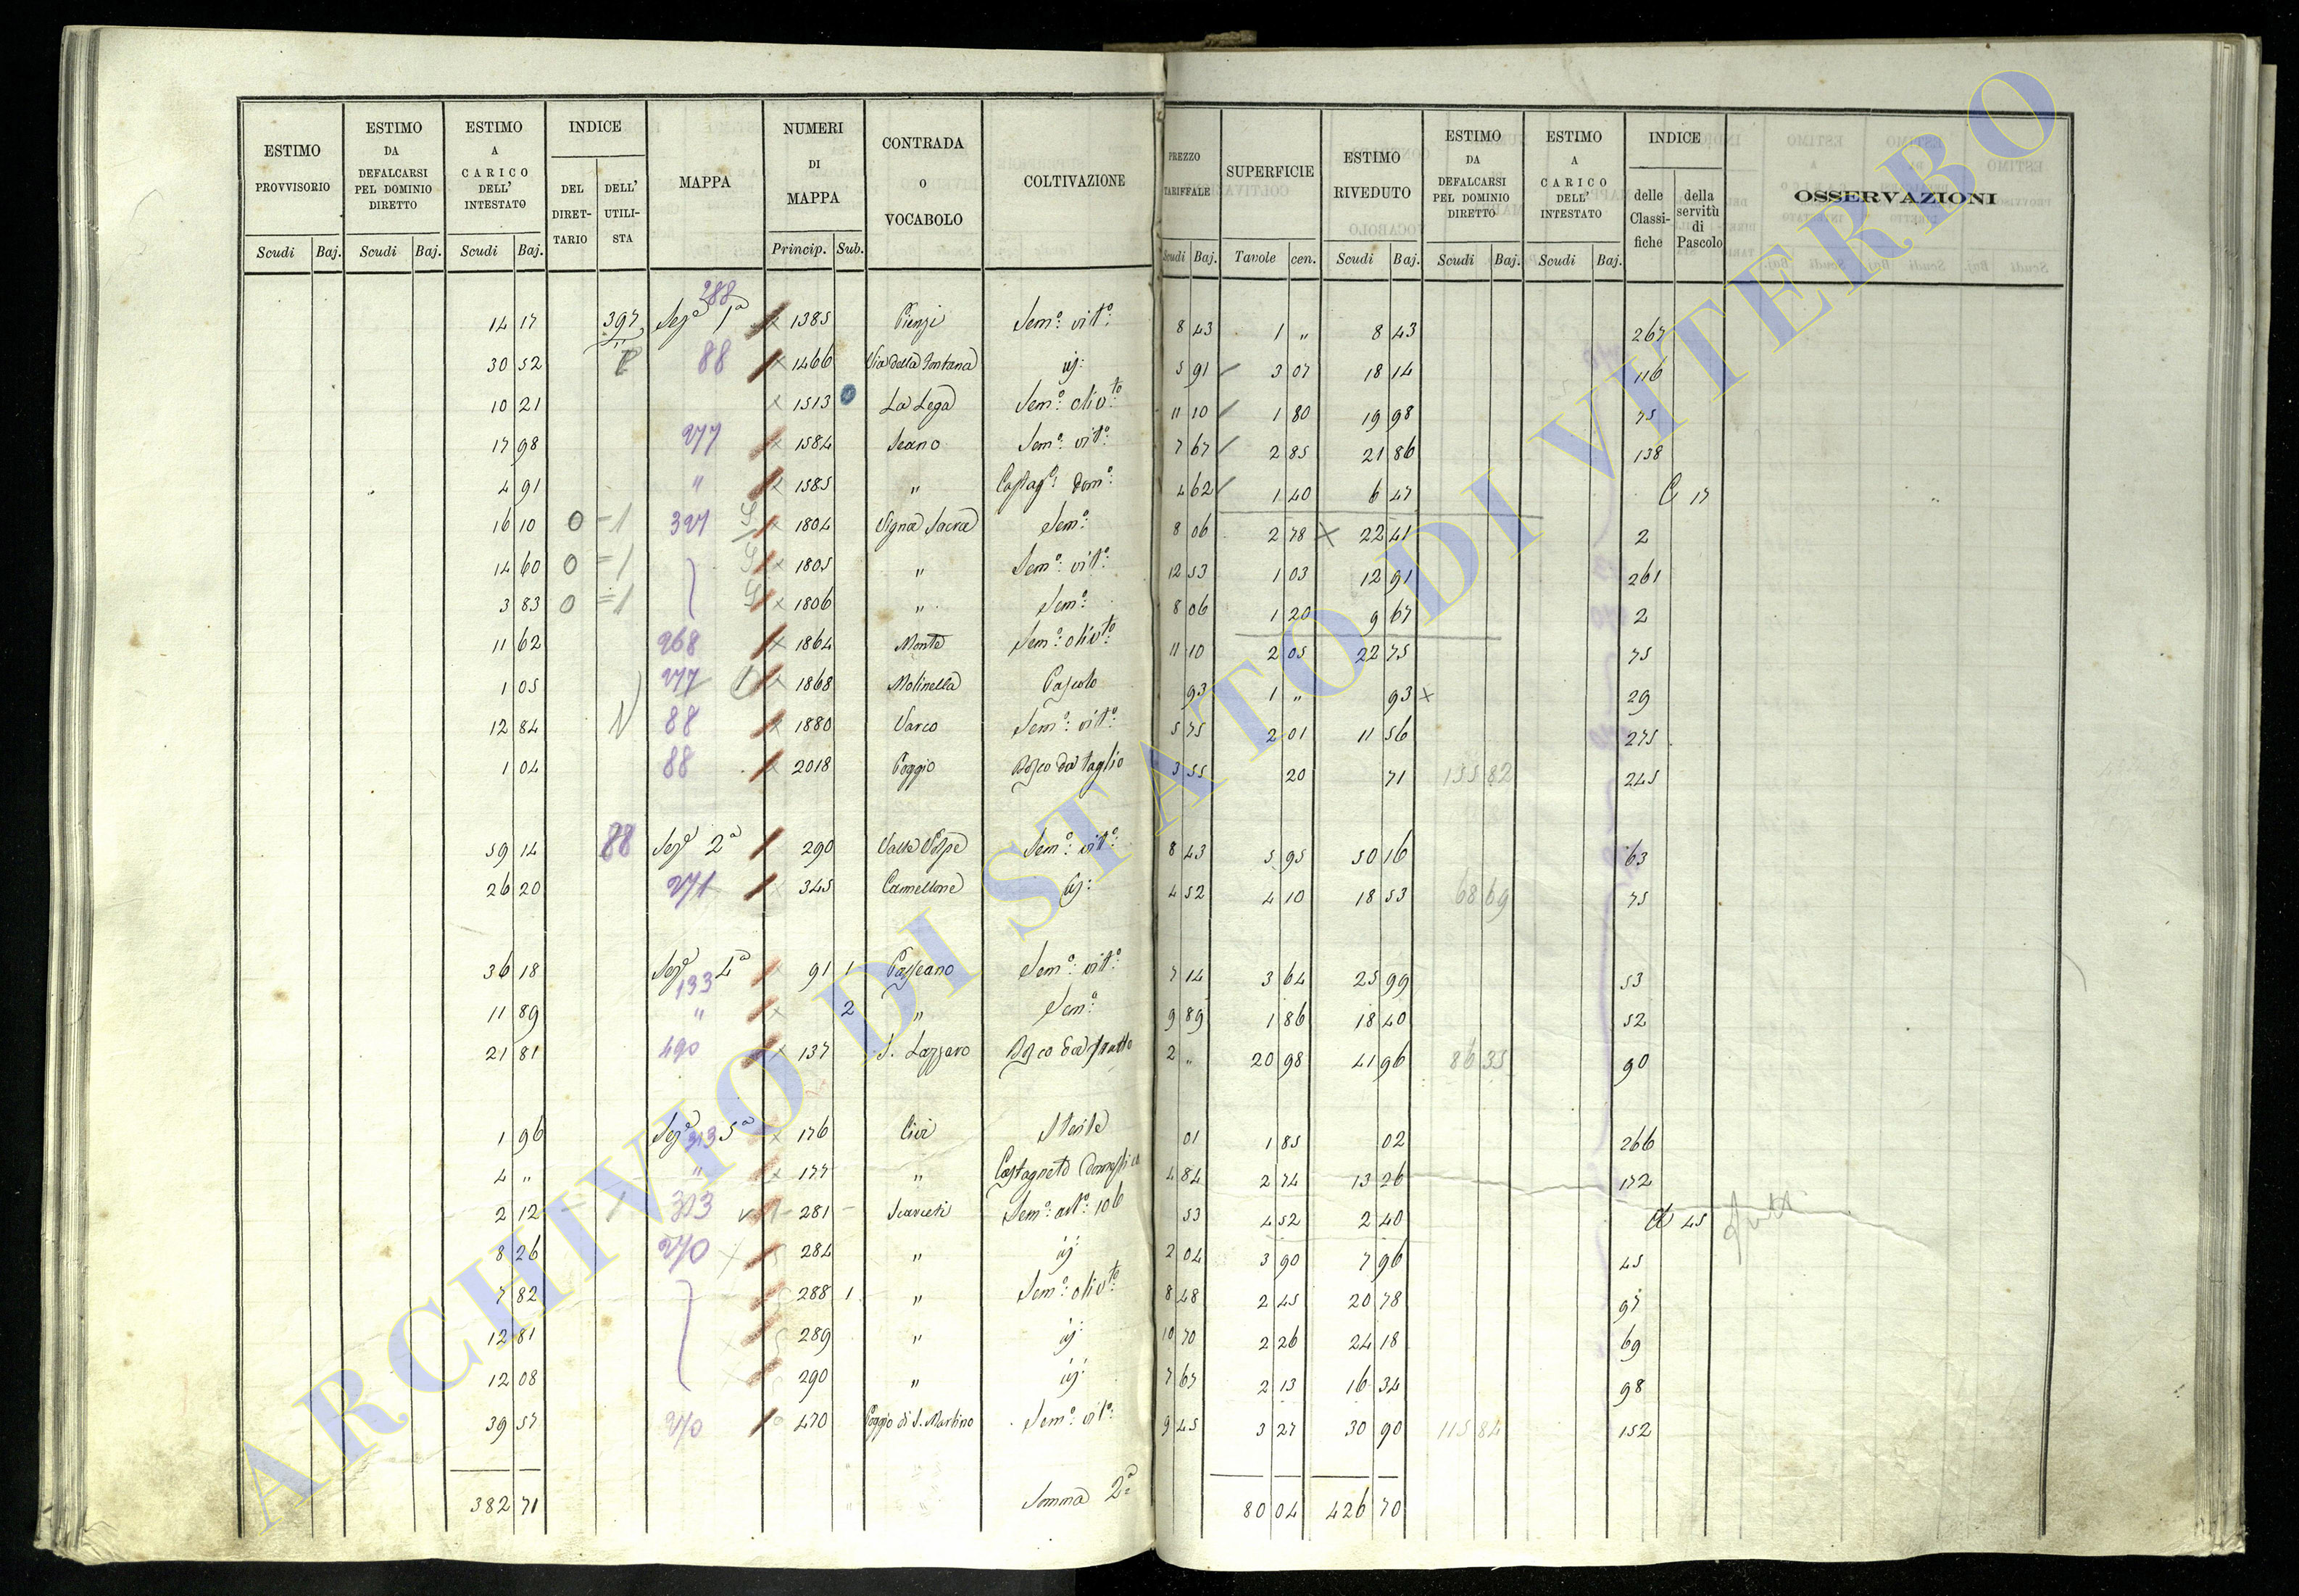 ESTIMO PROVVISORIO | ESTIMO DA DEFALCARSI PEL DOMINIO DIRETTO | ESTIMO A CARICO DELL' INTESTATO | INDICE DEL DIRETTARIO | DELL' UTILISTA | MAPPA | NUMERI DI MAPPA | CONTRADA O VOCABOLO | COLTIVAZIONE | PREZZO TARIFFALE | SUPERFICIE | ESTIMO RIVEDUTO | ESTIMO DA DEFALCARSI PEL DOMINIO DIRETTO | ESTIMO A CARICO DELL' INTESTATO | INDICE delle Classifiche | della servitù di Pascolo | OSSERVAZIONI
Scudi Baj. Scudi Baj. Scudi Baj. Princip. Sub. Scudi Baj. Tavole cen. Scudi Baj. Scudi Baj. Scudi Baj.
288
14 17 397 Sezᵉ 1ᵃ 1385 Pienzi Semᵒ: vitᵒ: 8 43 1 " 8 43 267
30 52 88 1466 Via della Fontana id: 5 91 3 07 18 14 116
10 21 1513 La Lega Semᵒ: olivᵗᵒ 11 10 1 80 19 98 75
17 98 277 1584 Seano Semᵒ: vitᵒ: 7 67 2 85 21 86 138
4 91 " 1585 " Castagᵒ: domᵒ: 4 62 1 40 6 47 C 17
16 10 0 = 1 327 1804 Vigna Sacra Semᵒ: 8 06 2 78 22 41 2
14 60 0 = 1 1805 " Semᵒ: vitᵒ: 12 53 1 03 12 91 261
3 83 0 = 1 1806 " Semᵒ: 8 06 1 20 9 67 2
11 62 268 1864 Monte Semᵒ: olivᵗᵒ 11 10 2 05 22 75 75
1 05 277 1868 Molinella Pascolo 93 1 " 93 29
12 84 88 1880 Varco Semᵒ: vitᵒ: 5 75 2 01 11 56 275
1 04 88 2018 Poggio Bosco da taglio 3 55 20 71 135 82 245
59 14 88 Sezᵉ 2ᵃ 290 Valle Volpe Semᵒ: vitᵒ: 8 43 5 95 50 16 63
26 20 271 345 Camellone id: 4 52 4 10 18 53 68 69 75
36 18 Sezᵉ 4ᵃ 133 91 1 Passeano Semᵒ: vitᵒ: 7 14 3 64 25 99 53
11 89 " 2 " Semᵒ: 9 89 1 86 18 40 52
21 81 490 137 S. Lazzaro Bosco da frutto 2 " 20 98 41 96 86 35 90
1 96 Sezᵉ 5ᵃ 313 176 Civa Sterile 01 1 85 02 266
4 " " 177 " Castagneto domestico 4 84 2 74 13 26 172
2 12 313 281 Scarceti Semᵒ: 106 53 4 52 2 40 A 45
8 26 270 284 " id: 2 04 3 90 7 96 45
7 82 288 1 " Semᵒ: olivᵗᵒ 8 48 2 45 20 78 97
12 81 289 " id: 10 70 2 26 24 18 69
12 08 290 " id: 7 67 2 13 16 34 98
39 57 270 470 Poggio di S. Martino Semᵒ: vitᵒ: 9 45 3 27 30 90 115 84 152
382 71 Somma 2ᵃ 80 04 426 70
ARCHIVIO DI STATO DI VITERBO